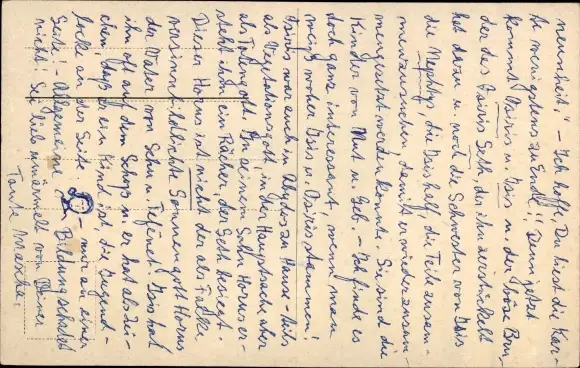 nenweisheit." – Ich hoffe, Du liest die Kar-
te wenigstens zu Ende!! Denn jetzt
kommt Osiris u. Isis u. der böse Bru-
der des Osiris Seth, der ihn zerstückelt
hat dazu u. noch die Schwester von Isis
die Nephtys, die Isis half, die Teile zusam-
menzusuchen, damit er wieder zusam-
mengesetzt werden konnte. Sie sind die
Kinder von Nut u. Geb. – Ich finde es
doch ganz interessant, wenn man
weiß woher Isis u. Osiris stammen!
Osiris war auch in Abydos zu Hause – teils
als Vegetationsgott, in der Hauptsache aber
als Totengott. In seinem Sohn Horus er-
steht ihm ein Rächer, der Seth besiegt.
Dieser Horus ist nicht der als Falke
versinnbildlichte Sonnengott Horus
der Vater von Schu u. Tefenet. Isis hat
ihn oft auf dem Schoß u. er hat als Zei-
chen, daß er ein Kind ist, die Jugend-
locke an der Seite. – nur an einer
Seite! – Allgemeine Bildung schadet
nicht! Sei lieb umarmt von Deiner
Tante